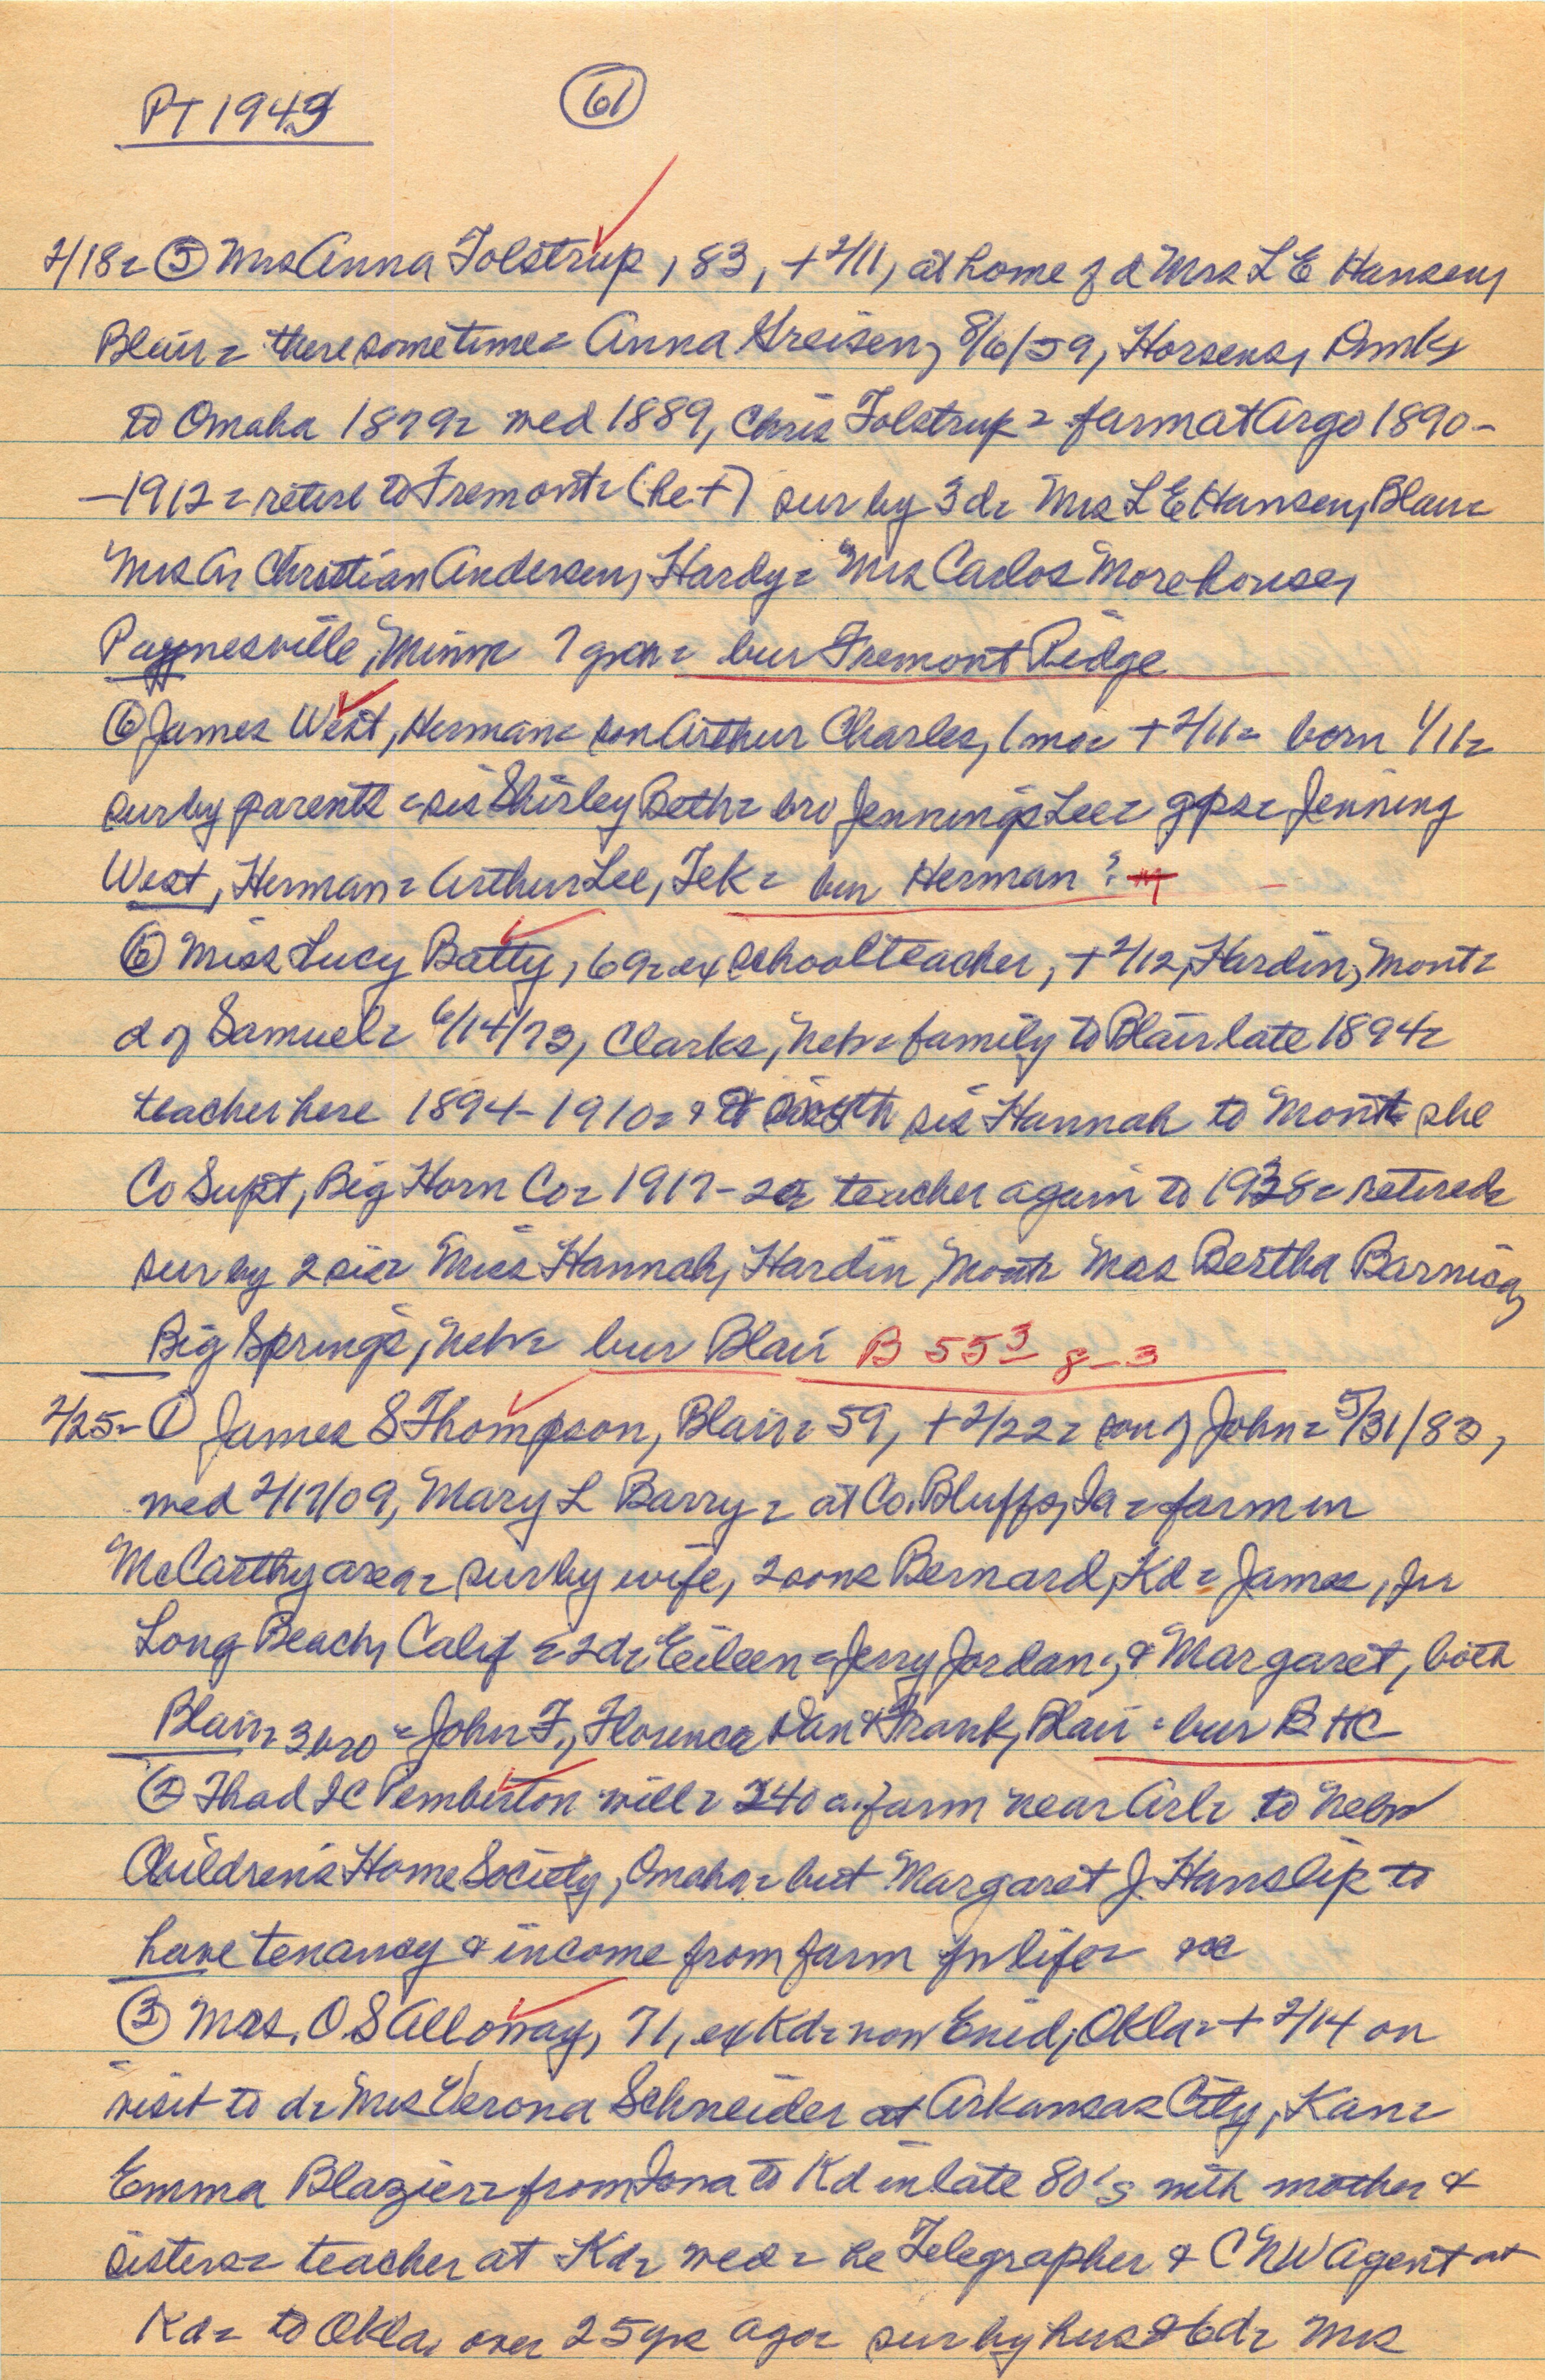 PT 1943
61
2/18 = (5) Mrs Anna Tolstrup, 83, + 2/11, at home of d Mrs L E Hansen,
Blair = there sometime = Anna Greisen, 8/6/59, Horsens, Dmk,
to Omaha 1879 = wed 1889, Chris Tolstrup = farm at Argo 1890 -
- 1912 = retire to Fremont = (he +) sur by 3 d = Mrs L E Hansen, Blair =
Mrs Christian Andersen, Hardy = Mrs Carlos Morehouse,
Paynesville, Minn 7 gcn = bur Fremont Ridge
(6) James West, Herman = son Arthur Charles, 1 mo = + 2/11 = born 1/11 =
sur by parents = sis Shirley Beth = bro Jennings Lee = gps = Jenning
West, Herman = Arthur Lee, Tek = bur Herman ?
(6) Miss Lucy Batty, 69 = ex school teacher, + 2/12, Hardin, Mont =
d of Samuel = 6/14/73, Clarks, Nebr = family to Blair late 1894 =
teacher here 1894 - 1910 = & sis Hannah to Mont she
Co Supt, Big Horn Co = 1917 - teacher again to 1938 = retired =
sur by 2 sis = Miss Hannah, Hardin, Mont = Mrs Bertha
Big Springs, Nebr = bur Blair B 55 3 8-3
2/25 - (1) James S Thompson, Blair = 59, + 2/22 = son of John = 5/31/83,
wed 2/17/09, Mary L Barry = at Co. Bluffs, Ia = farm in
McCarthy area = sur by wife, 2 sons Bernard, Kd = James, Jr
Long Beach, Calif = 2 d = Eileen = Jerry Jordan, & Margaret, both
Blair = 3 bro = John F., Florence Dan & Frank, Blair = bur B HC
(2) Thad I C Pemberton will = 240 a. farm near Arl = to Nebr
Children's Home Society, Omaha = but Margaret J. Hanslip to
have tenancy & income from farm for life =
(3) Mrs. O S Alloway, 71, ex Kd = now Enid, Okla = + 2/14 on
visit to d = Mrs Verona Schneider at Arkansas City, Kan =
Emma Blazier = from Iowa to Kd in late 80's with mother &
sisters = teacher at Kd = wed = he Telegrapher & CNW Agent at
Kd = to Okla. over 25 yrs ago = sur by hus & 6 d = Mrs